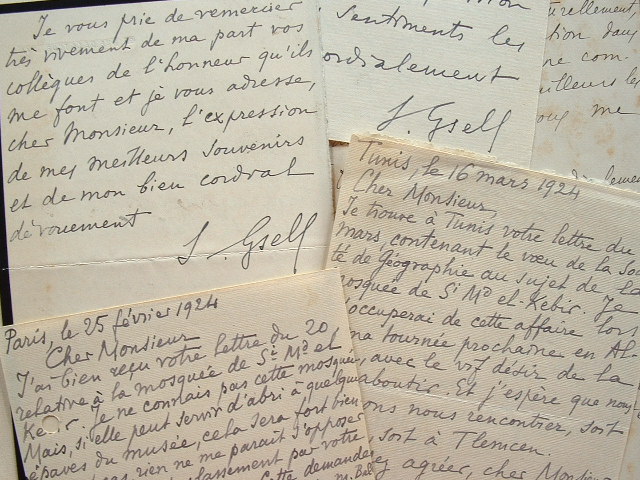 Je vous prie de remercier
très vivement de ma part vos
collègues de l'honneur qu'ils
me font et je vous adresse,
cher Monsieur, l'expression
de mes meilleurs souvenirs
et de mon bien cordial
dévouement
S. Gsell
sentiments les
cordialement
S. Gsell
urellement
tion dans
ne com
ailleurs les
ous me
Tunis, le 16 mars 1924
Cher Monsieur,
Je trouve à Tunis votre lettre du
mars, contenant le vœu de la Soc
té de Géographie au sujet de la
mosquée de Si Md el-Kebir. Je
occuperai de cette affaire lors
ma tournée prochaine en Al
, avec le vif désir de la
aboutir. Et j'espère que nous
ons nous rencontrer, soit
, soit à Tlemcen.
ez agréer, cher Monsieur
Paris, le 25 février 1924
Cher Monsieur
J'ai bien reçu votre lettre du 20
relative à la mosquée de Si Md el
Kebir. Je ne connais pas cette mosquée,
Mais, si elle peut servir d'abri à quelques
épaves du musée, cela sera fort bien
cas, rien ne me paraît s'opposer
classement par votre
Cette demande